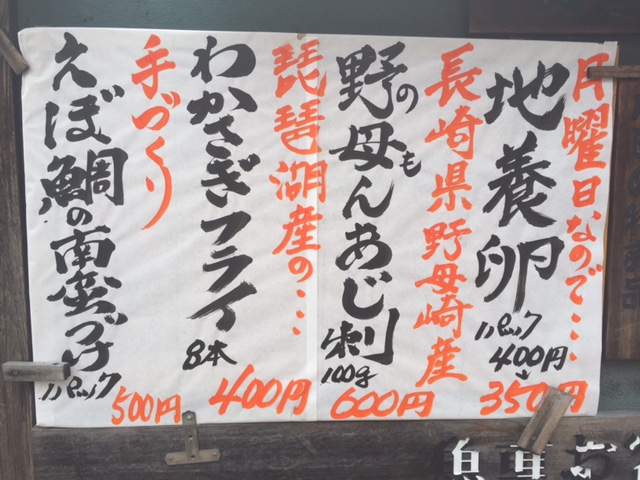 月曜日なので・・・
地養卵
1パック
400円
↓
350円
長崎県野母崎産
野母んあじ刺
のも
100g
600円
琵琶湖産の・・・
わかさぎフライ
8本
400円
手づくり
えぼ鯛の南蛮づけ
1パック
500円